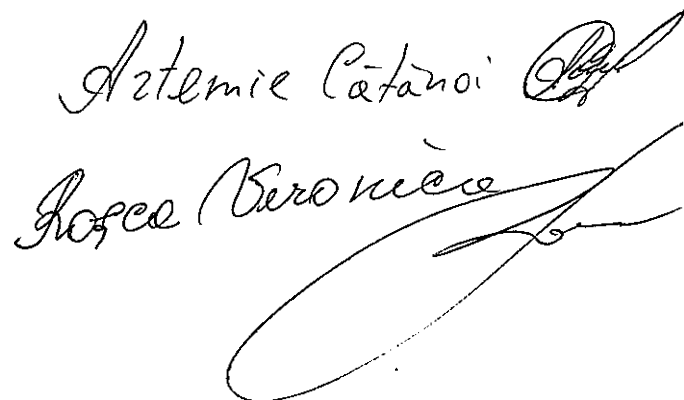 Artemie Cătănoi
Roșca Veronica